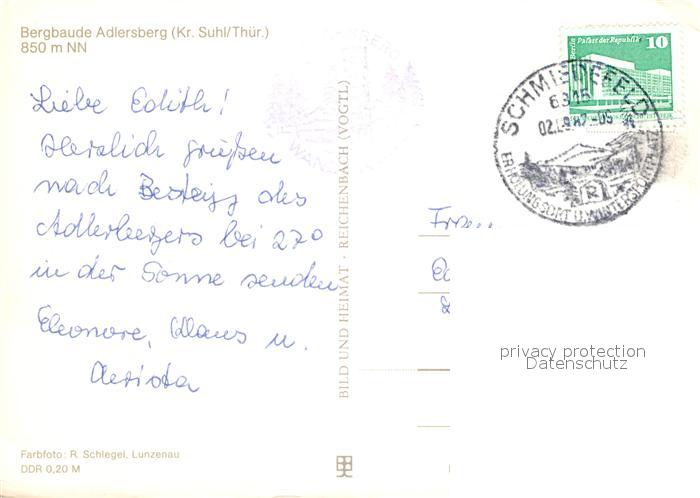 Bergbaude Adlersberg (Kr. Suhl/Thür.)
850 m NN
Liebe Edith!
Herzlich grüßen
nach Besteig des
Adlerberges bei 27°
in der Sonne senden
Eleonore, Klaus u.
BILD UND HEIMAT · REICHENBACH (VOGTL)
Berlin Palast der Republik 10
SCHMIEDEFELD
6315
ERHOLUNGSORT U. WINTERSPORTPLATZ
R
privacy protection
Datenschutz
Farbfoto: R. Schlegel, Lunzenau
DDR 0,20 M